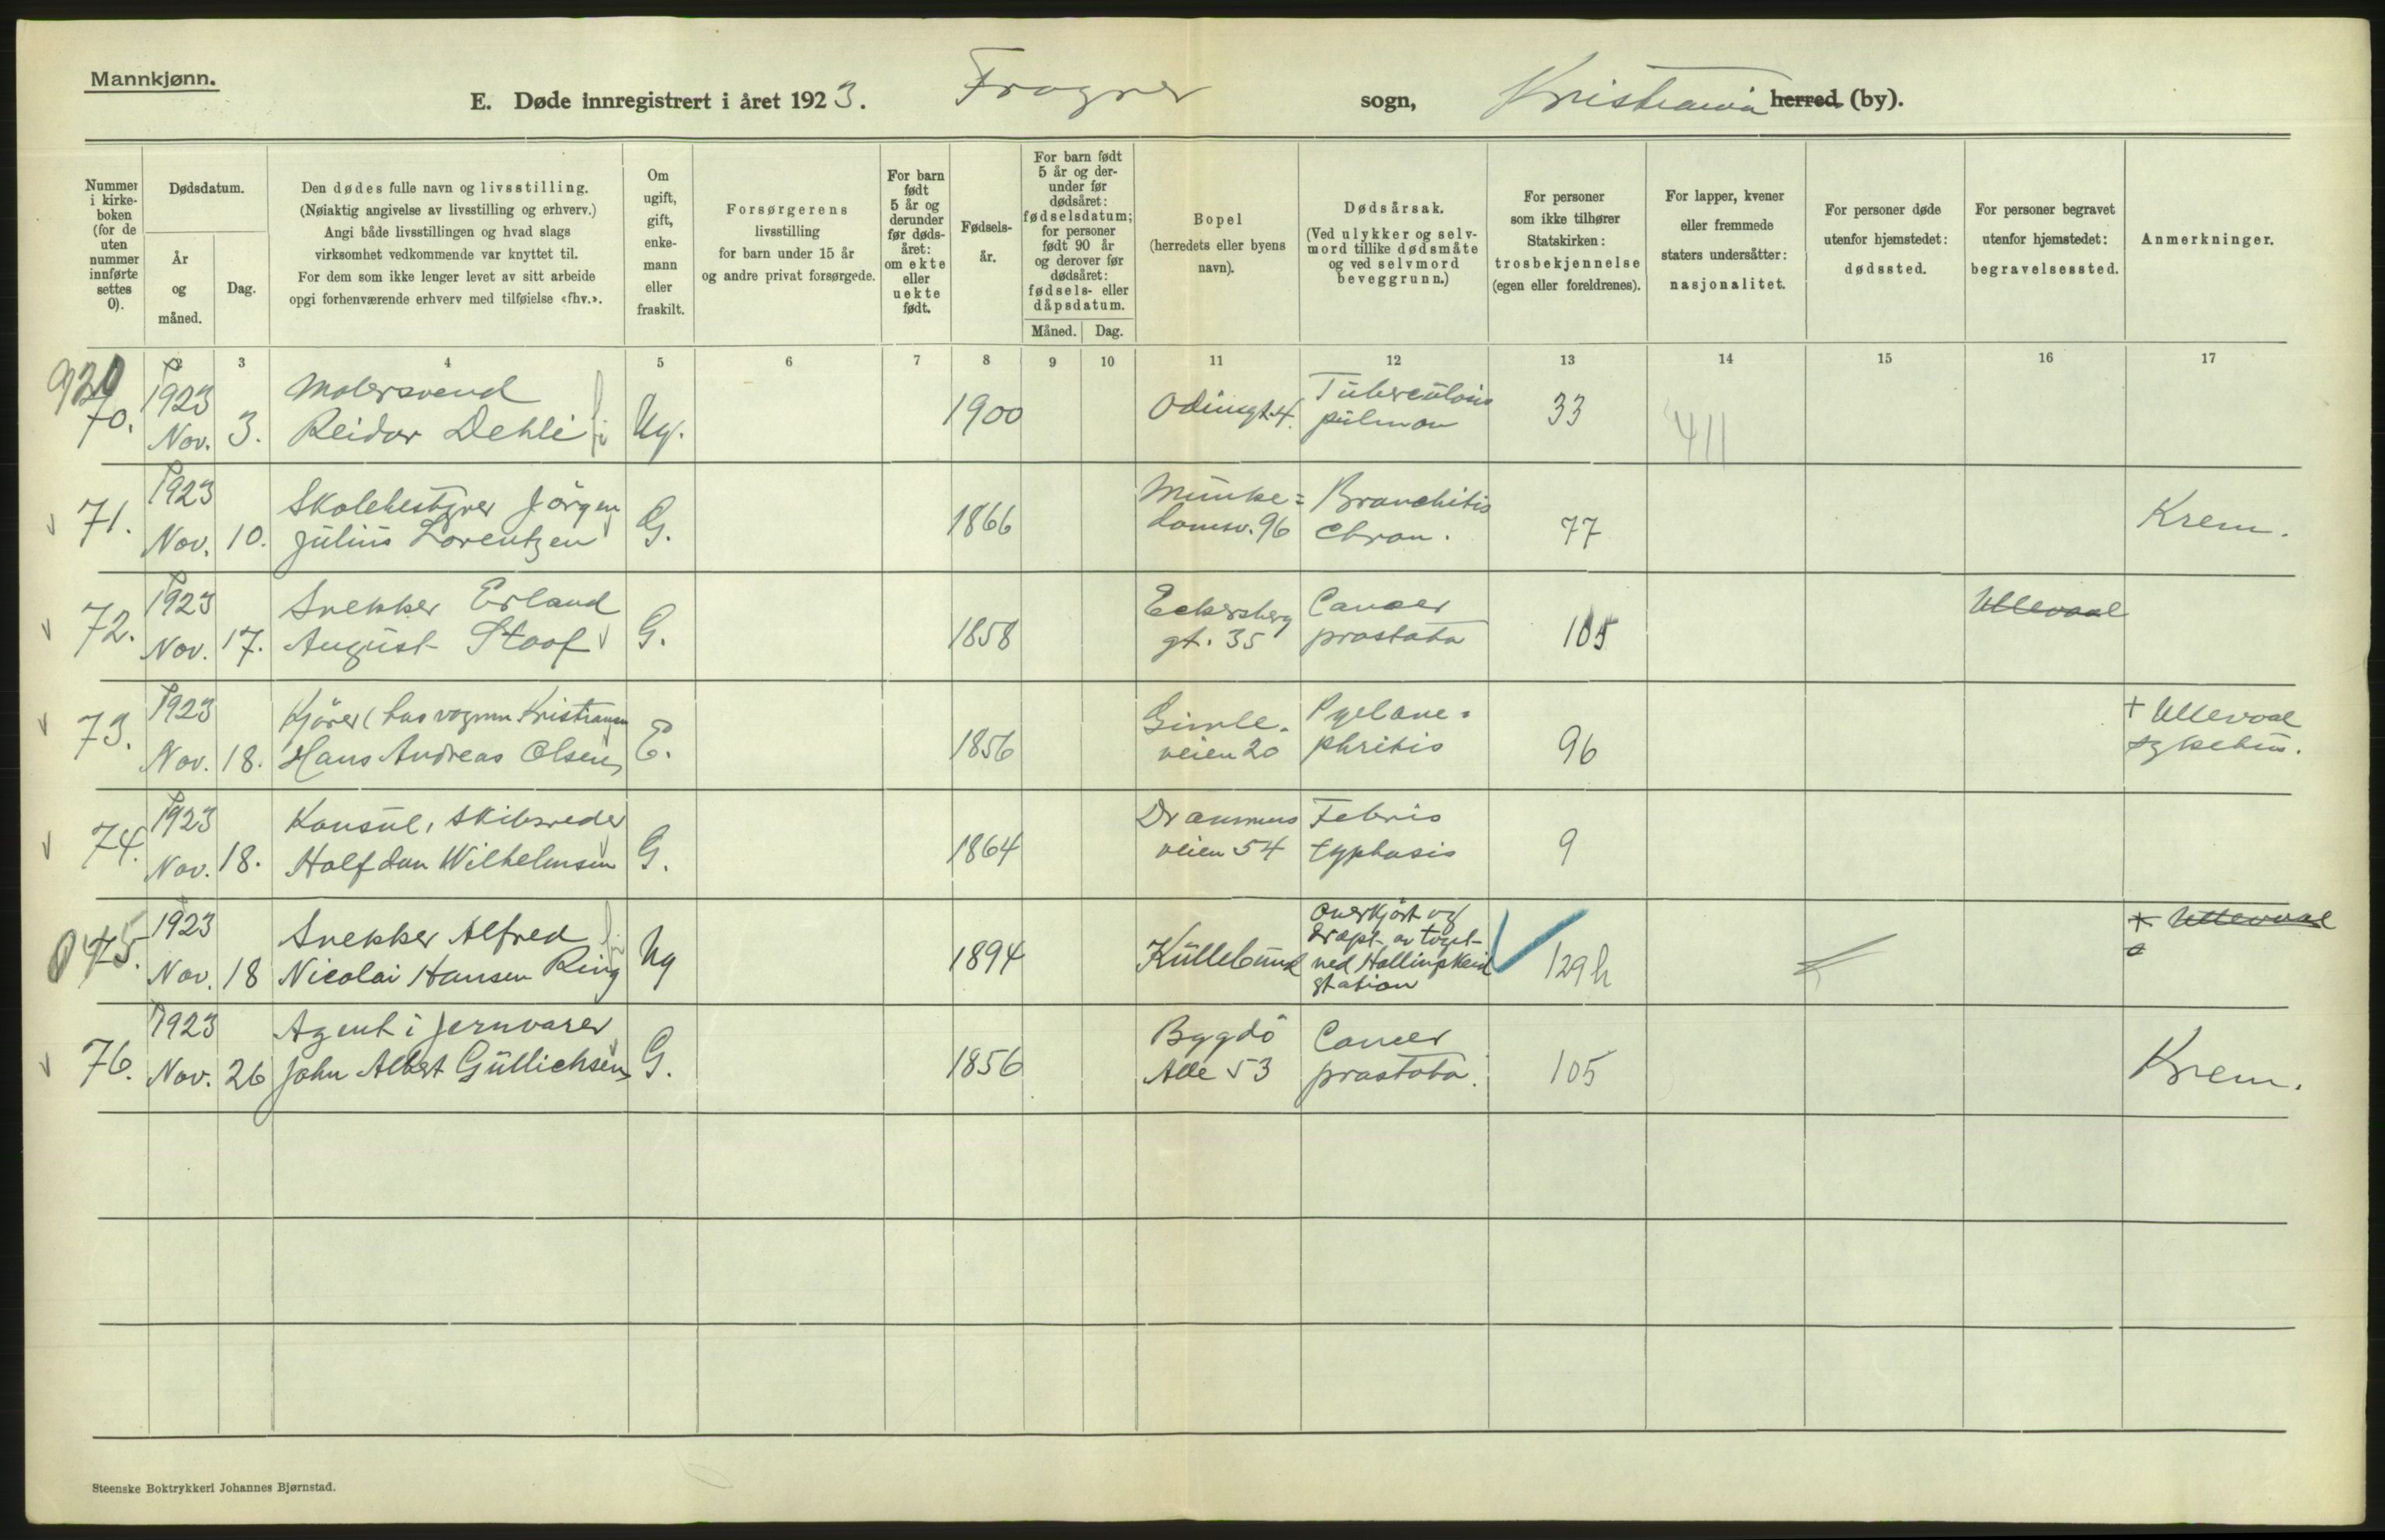 Mannkjønn.
E. Døde innregistrert i året 1923. Frogner sogn, Kristiania herred (by).
Nummer i kirke-boken (for de uten nummer innførte settes 0).
Dødsdatum.
År og måned.
Dag.
Den dødes fulle navn og livsstilling.
(Nøiaktig angivelse av livsstilling og erhverv.)
Angi både livsstillingen og hvad slags
virksomhet vedkommende var knyttet til.
For dem som ikke lenger levet av sitt arbeide
opgi forhenværende erhverv med tilføielse «fhv.».
Om ugift, gift, enke-mann eller fraskilt.
Forsørgerens
livsstilling
for barn under 15 år
og andre privat forsørgede.
For barn født 5 år og derunder før døds-året: om ekte eller uekte født.
Fødsels-år.
For barn født 5 år og der-under før dødsåret: fødselsdatum; for personer født 90 år og derover før dødsåret: fødsels- eller dåpsdatum.
Måned. Dag.
Bopel
(herredets eller byens navn).
Dødsårsak.
(Ved ulykker og selv-mord tillike dødsmåte og ved selvmord beveggrunn.)
For personer
som ikke tilhører
Statskirken:
trosbekjennelse
(egen eller foreldrenes).
For lapper, kvener
eller fremmede
staters undersåtter:
nasjonalitet.
For personer døde
utenfor hjemstedet:
dødssted.
For personer begravet
utenfor hjemstedet:
begravelsessted.
Anmerkninger.
2 3 4 5 6 7 8 9 10 11 12 13 14 15 16 17
70. 1923 Nov. 3. Malersvend
Reidar Dehli Ug. 1900 Odinsgt. 4. Tuberculosis
pulmon 33 411
71. 1923 Nov. 10. Skolebestyrer Jörgen
Julius Lorentzen G. 1866 Munke=
damsv. 96 Bronchitis
chron. 77 Krem.
72. 1923 Nov. 17. Snekker Erland
August Stoof G. 1858 Eckersberg
gt. 35 Cancer
prostata 105 Ullevaal
73. 1923 Nov. 18. Kjörer
Hans Andreas Olsen E. 1856 Gimle-
veien 20 Pyelone=
phritis 96 + Ullevaal
sykehus.
74. 1923 Nov. 18. Konsul, skibsreder
Halfdan Wilhelmsen G. 1864 Drammens
veien 54 Febris
typhosis 9
0 75. 1923 Nov. 18 Snekker Alfred
Nicolai Hansen Ring Ug 1894 Küllebund Overkjört og
dræpt av toget
ved Hallingskeid
station 129h Ullevaal
76. 1923 Nov. 26 Agent i Jernvarer
John Albert Güllichsen G. 1856 Bygdö
Alle 53 Cancer
prostata. 105 Krem.
Steenske Boktrykkeri Johannes Bjørnstad.